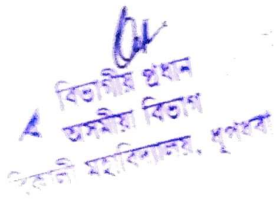 বিভাগীয় প্ৰধান
অসমীয়া বিভাগ
মহাবিদ্যালয়, ধূপধৰা